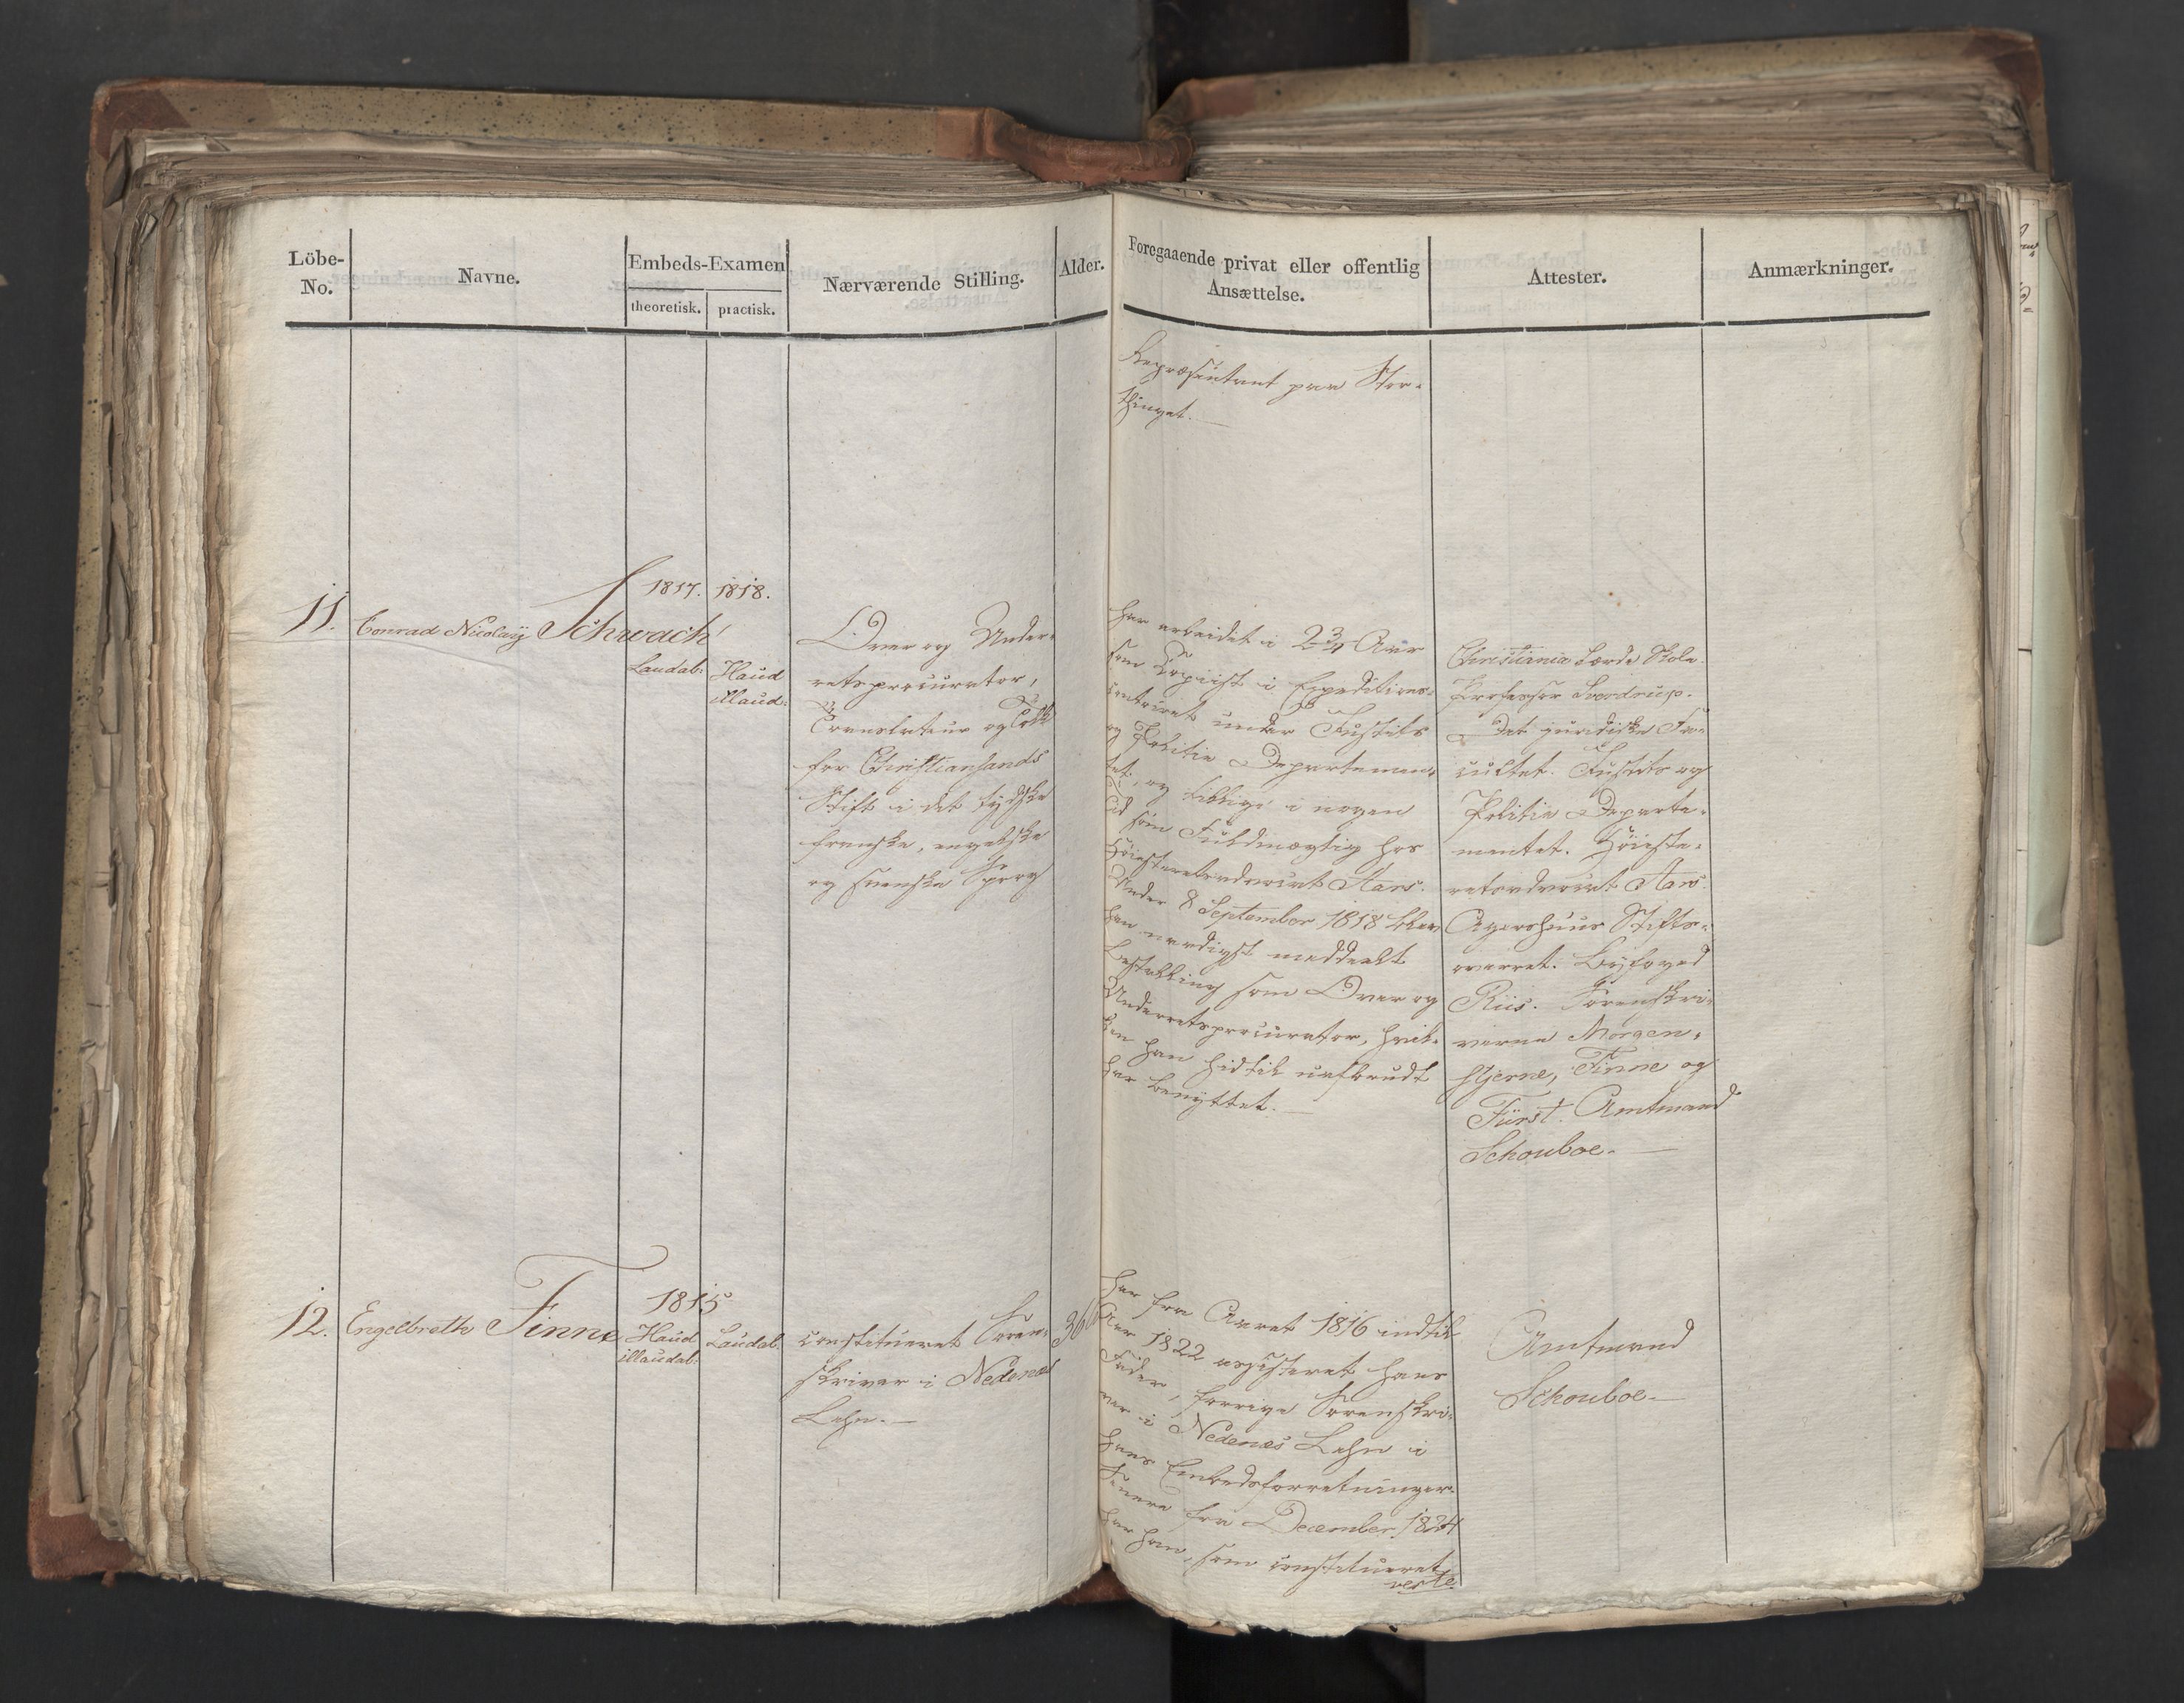 Löbe-
No.
Navne.
Embeds-Examen
theoretisk.
practisk.
Nærværende Stilling.
Alder.
Foregaaende privat eller offentlig
Ansættelse.
Attester.
Anmærkninger.
Repræsentant paa Stor-
thinget.
11.
Conrad Nicolaij Schwach
1817.
Laudab:
1818.
Haud
illaud:
Over og Under-
retsprocurator,
Translateur og Tolk
for Christiansands
Stift i det tydske
franske, engelske
og svenske Sprog
har arbeidet i 2 3/4 Aar
som Copiist i Expeditions-
contoiret under Justits
og Politie Departemen-
tet, og tillige i nogen
Tid som Fuldmægtig hos
Höiesteretsadvocat Aars.
Under 8 September 1818 blev
ham naadigst meddeelt
Bestalling som Over og
Underretsprocurator, hvil-
ken han hidtil uafbrudt
har benyttet.
Christiania Lærde Skole.
Professor Sverdrup.
Det juridiske Fa-
cultet. Justits og
Politie Departe-
mentet. Höieste-
retsadvocat Aars.
Agershuus Stifts-
overret. Byfoged
Riis. Sorenskri-
verne Morgen-
stjerne, Finne og
Fürst. Amtmand
Schouboe.
12.
Engelbreth Finne
1815
Haud
illaudab:
Laudab:
constitueret Soren-
skriver i Nedenæs
Lehn.
36
har fra Aaret 1816 indtil
Aar 1822 assisteret hans
Fader, forrige Sorenskri-
ver i Nedenæs Lehn i
hans Embedsforretninger.
Senere fra December 1824
har han, som constitueret